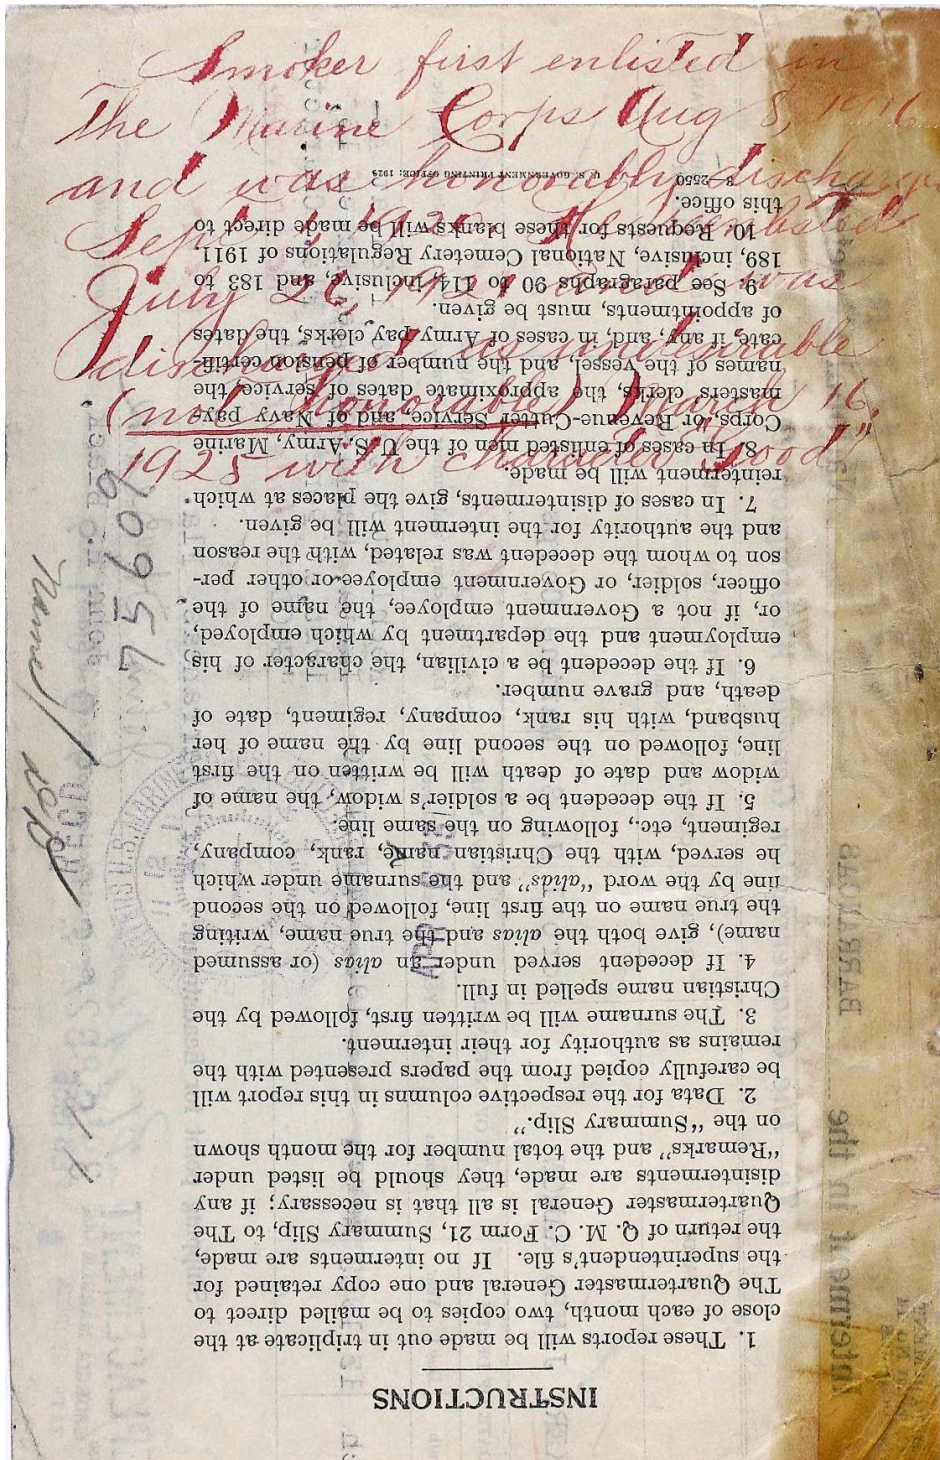 Smoker first enlisted in
The Marine Corps Aug 8, 1916
and was honorably disch
Sept 1, 1920. He reenlisted
July 26, 1921 and was
discharged as undesirable
(not honorable) March 16,
1925 with character "Good"
INSTRUCTIONS
1. These reports will be made out in triplicate at the
close of each month, two copies to be mailed direct to
The Quartermaster General and one copy retained for
the superintendent's file. If no interments are made,
the return of Q. M. C. Form 21, Summary Slip, to The
Quartermaster General is all that is necessary; if any
disinterments are made, they should be listed under
"Remarks" and the total number for the month shown
on the "Summary Slip."
2. Data for the respective columns in this report will
be carefully copied from the papers presented with the
remains as authority for their interment.
3. The surname will be written first, followed by the
Christian name spelled in full.
4. If decedent served under an alias (or assumed
name), give both the alias and the true name, writing
the true name on the first line, followed on the second
line by the word "alias" and the surname under which
he served, with the Christian name, rank, company,
regiment, etc., following on the same line.
5. If the decedent be a soldier's widow, the name of
widow and date of death will be written on the first
line, followed on the second line by the name of her
husband, with his rank, company, regiment, date of
death, and grave number.
6. If the decedent be a civilian, the character of his
employment and the department by which employed,
or, if not a Government employee, the name of the
officer, soldier, or Government employee or other per-
son to whom the decedent was related, with the reason
and the authority for the interment will be given.
7. In cases of disinterments, give the places at which
reinterment will be made.
8. In cases of enlisted men of the U. S. Army, Marine
Corps, or Revenue-Cutter Service, and of Navy pay-
masters clerks, the approximate dates of service, the
names of the vessel, and the number of pension certifi-
cate, if any, and, in cases of Army pay clerks, the dates
of appointments, must be given.
9. See paragraphs 90 to 114, inclusive, and 183 to
189, inclusive, National Cemetery Regulations of 1911.
10. Requests for these blanks will be made direct to
this office.
3—2550 U. S. GOVERNMENT PRINTING OFFICE: 1929
Name
Interment in the
BARRANCAS